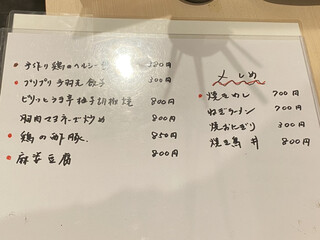 手作り鶏のヘルシー 280円
プリプリ手羽元餃子 300円
ピリッとうま辛柚子胡椒焼 800円
胸肉マヨネーズ炒め 800円
鶏の酢豚. 850円
麻婆豆腐 800円
〆しめ
焼きめし 700円
ねぎラーメン 700円
焼おにぎり 300円
焼き鳥丼 800円